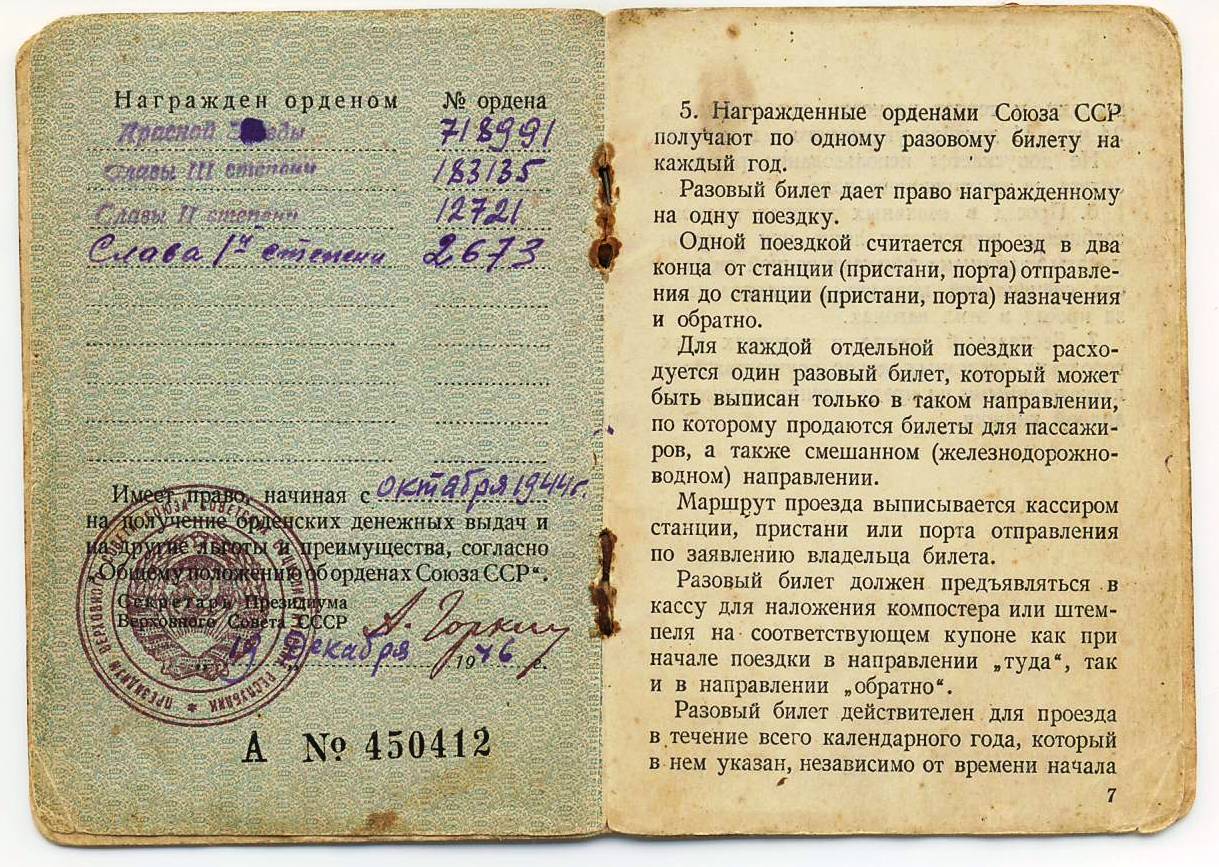 Награжден орденом № ордена
Красной Звезды 718991
Славы III степени 183135
Славы II степени 12721
Слава Iй степени 2673
Имеет право, начиная с октября 1944г.
на получение орденских денежных выдач и
на другие льготы и преимущества, согласно
„Общему положению об орденах Союза ССР“.
Секретарь Президиума
Верховного Совета СССР А. Горкин
19 декабря 1946 г.
А № 450412
5. Награжденные орденами Союза ССР
получают по одному разовому билету на
каждый год.
Разовый билет дает право награжденному
на одну поездку.
Одной поездкой считается проезд в два
конца от станции (пристани, порта) отправле-
ния до станции (пристани, порта) назначения
и обратно.
Для каждой отдельной поездки расхо-
дуется один разовый билет, который может
быть выписан только в таком направлении,
по которому продаются билеты для пассажи-
ров, а также смешанном (железнодорожно-
водном) направлении.
Маршрут проезда выписывается кассиром
станции, пристани или порта отправления
по заявлению владельца билета.
Разовый билет должен предъявляться в
кассу для наложения компостера или штем-
пеля на соответствующем купоне как при
начале поездки в направлении „туда“, так
и в направлении „обратно“.
Разовый билет действителен для проезда
в течение всего календарного года, который
в нем указан, независимо от времени начала
7